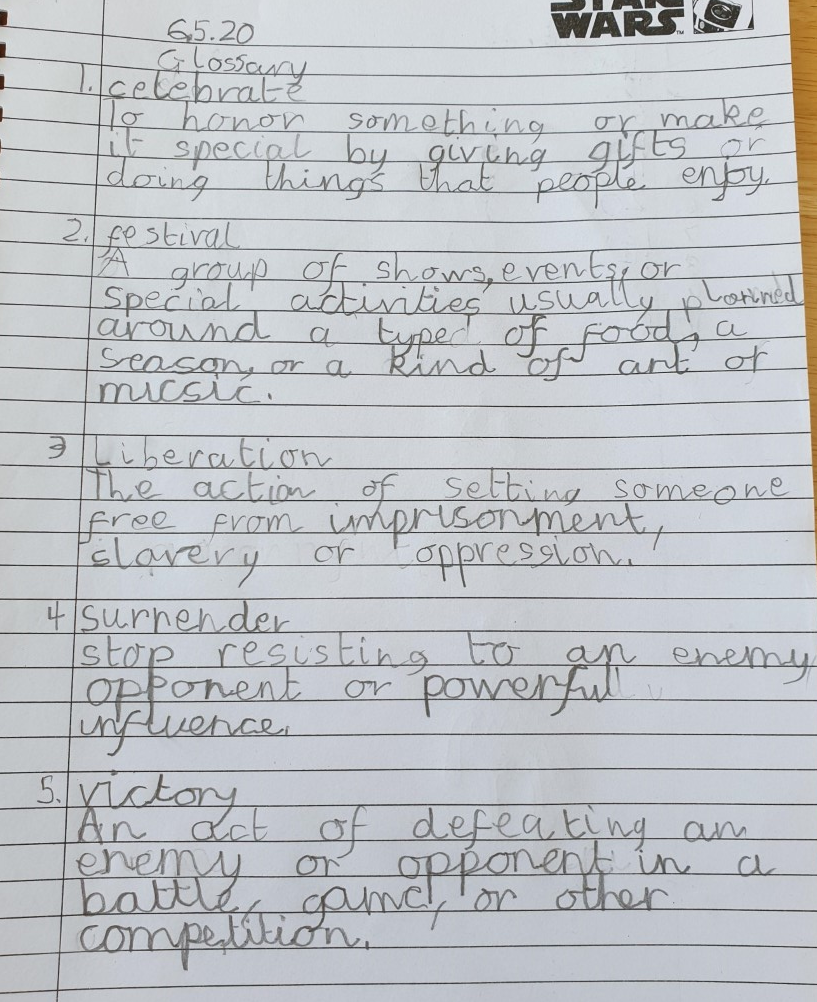 STAR
WARS
6.5.20
Glossary
1. celebrate
To honor something or make
it special by giving gifts or
doing things that people enjoy.
2. festival
A group of shows, events, or
special activities usually planned
around a typed of food, a
season, or a kind of art or
micsic.
3 Liberation
The action of setting someone
free from imprisonment,
slavery or oppression.
4 surrender
stop resisting to an enemy
opponent or powerful
influence.
5. victory
An act of defeating an
enemy or opponent in a
battle, game, or other
competition.